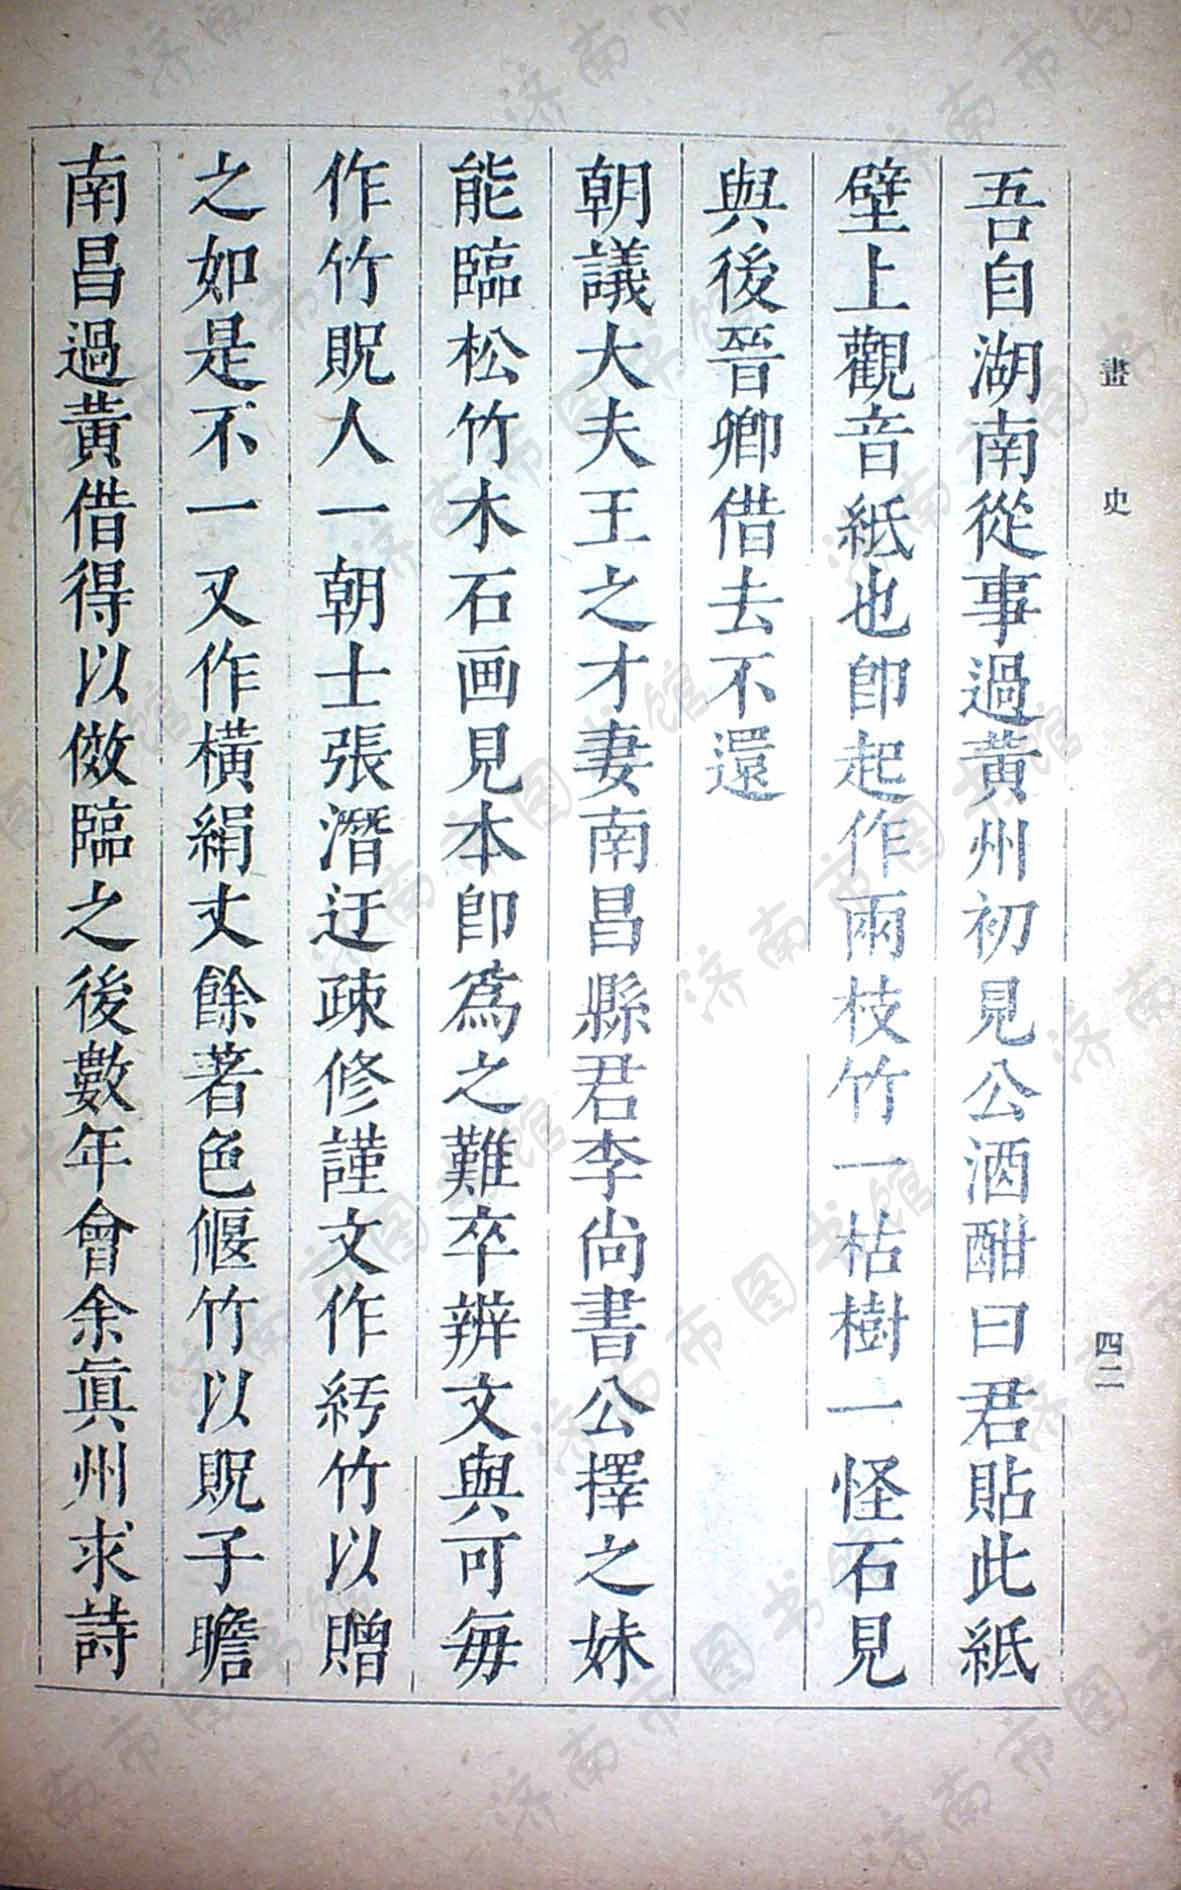 畫史 四二
吾自湖南從事過黃州初見公酒酣曰君貼此紙
壁上觀音紙也卽起作兩枝竹一枯樹一怪石見
與後晉卿借去不還
朝議大夫王之才妻南昌縣君李尚書公擇之妹
能臨松竹木石画見本卽爲之難卒辨文與可每
作竹貺人一朝士張潛迂疎修謹文作紆竹以贈
之如是不一又作橫絹丈餘著色偃竹以貺子瞻
南昌過黃借得以倣臨之後數年會余眞州求詩
济南市图书馆